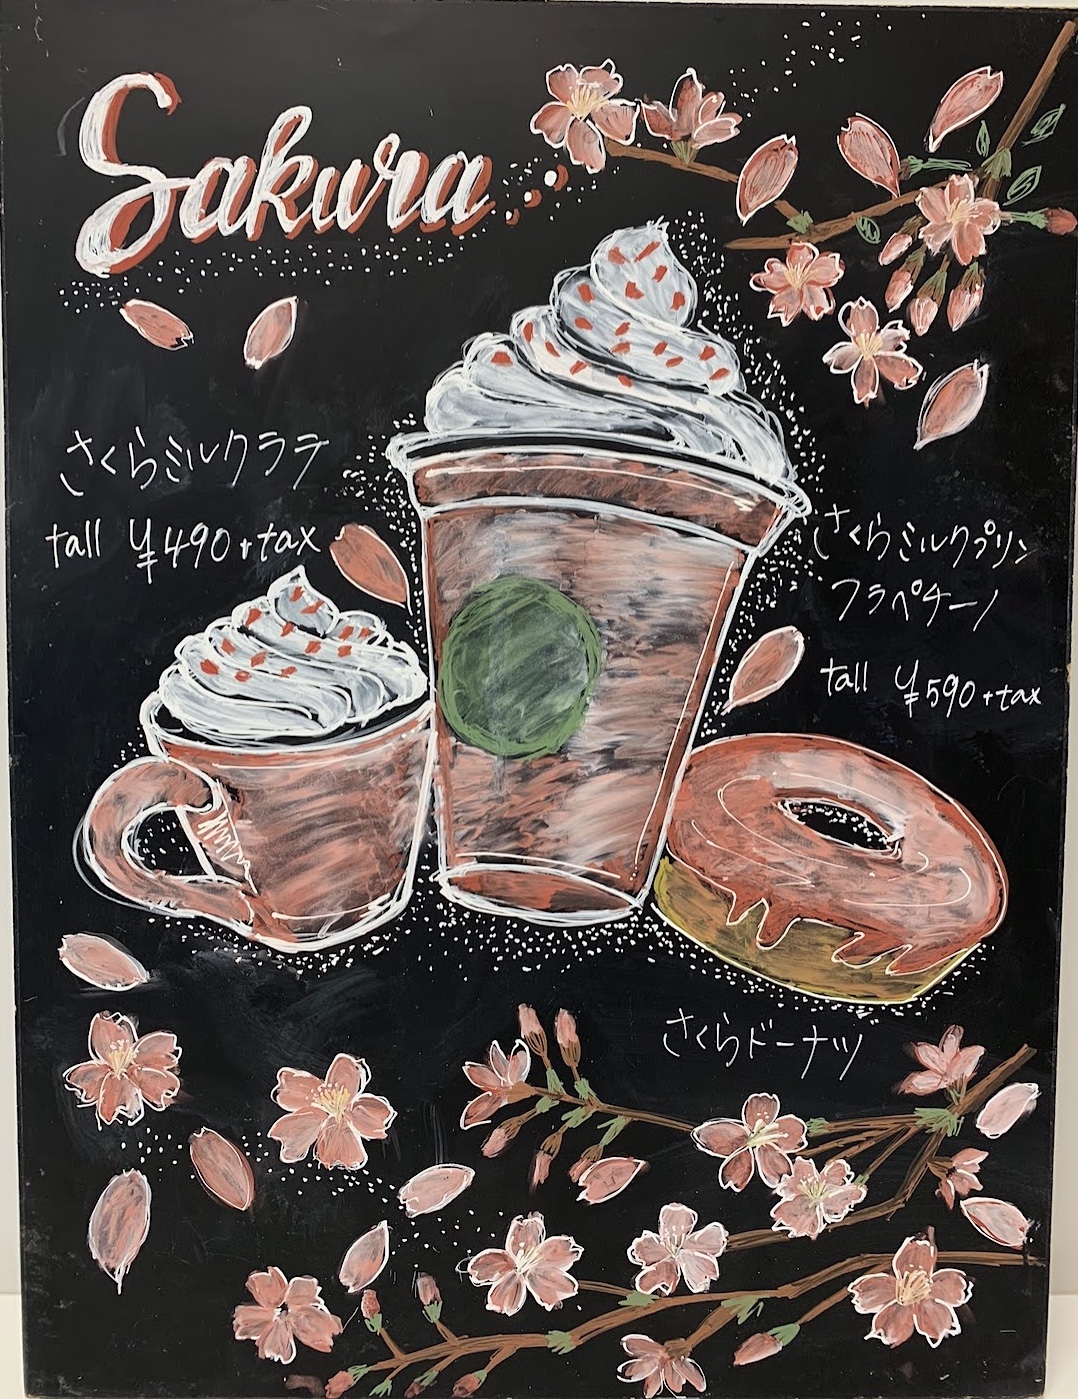 Sakura
さくらミルクラテ
tall ¥490+tax
さくらミルクプリン
フラペチーノ
tall ¥590+tax
さくらドーナツ